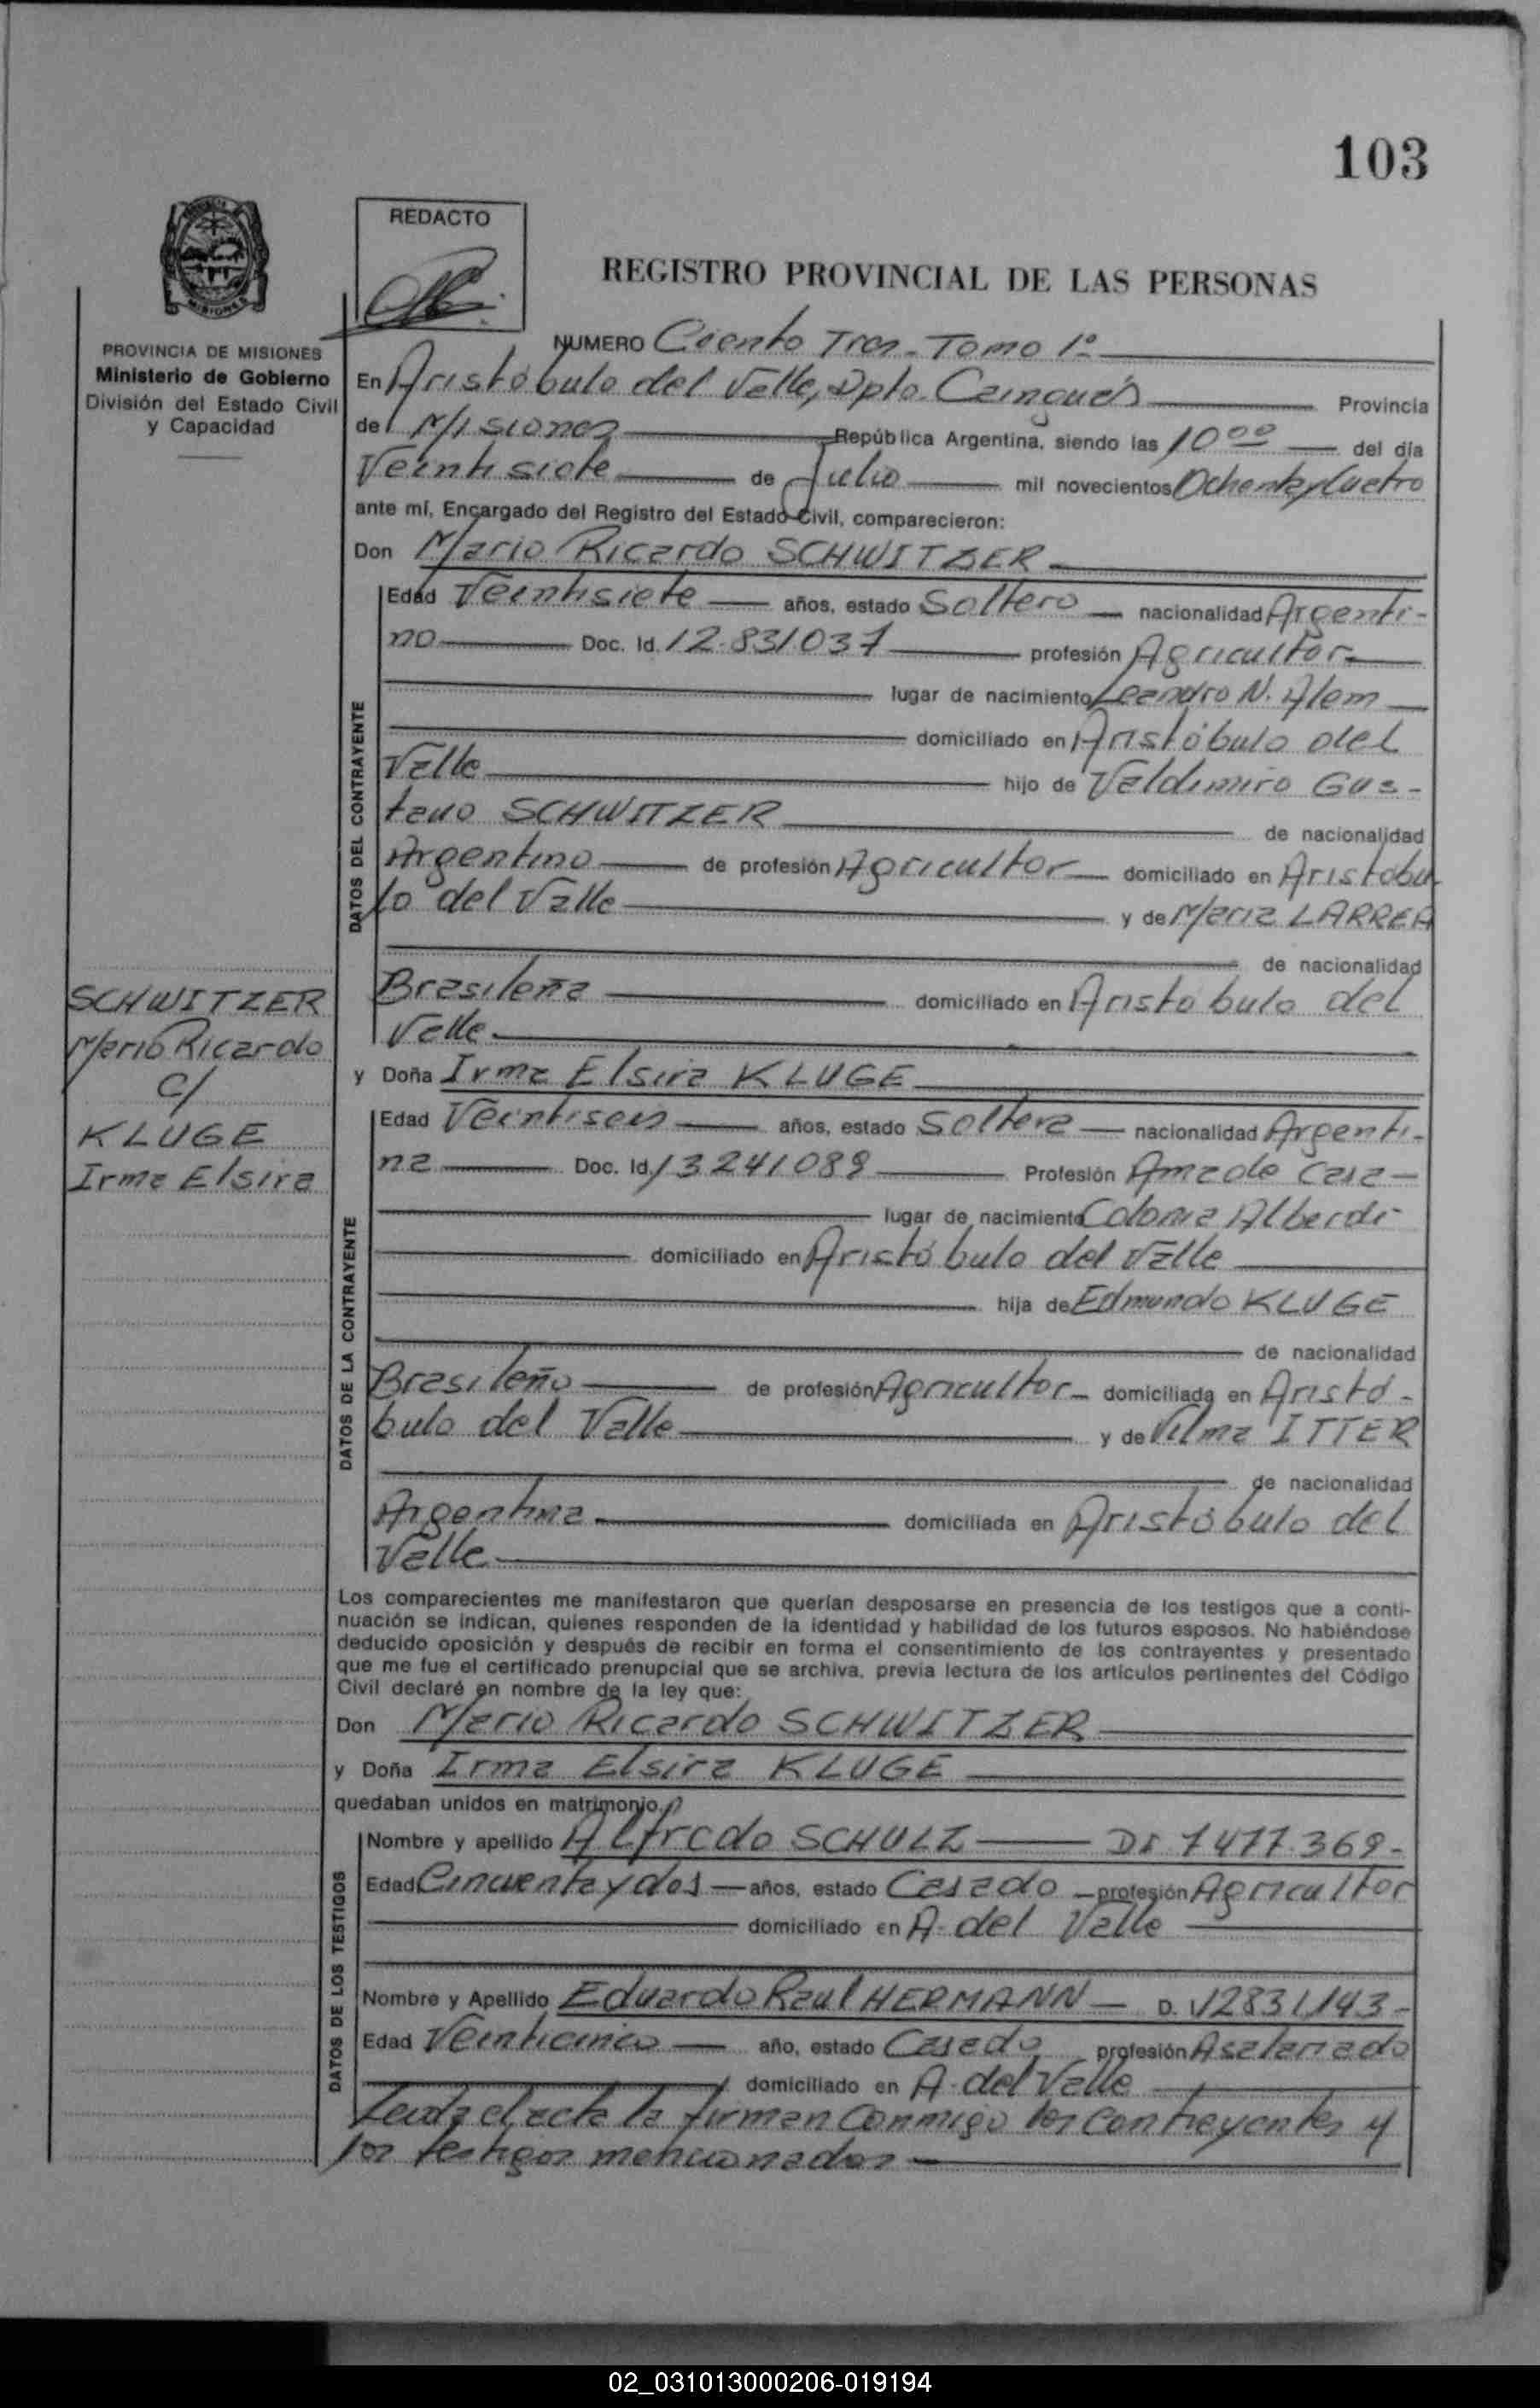 103
REDACTO
REGISTRO PROVINCIAL DE LAS PERSONAS
MISIONES
PROVINCIA DE MISIONES
Ministerio de Gobierno
División del Estado Civil
y Capacidad
NUMERO Ciento Tres - Tomo 1º
En Aristóbulo del Valle, Dpto. Cainguás Provincia
de Misiones República Argentina, siendo las 10 00 del día
Veintisiete de Julio mil novecientos Ochenta y Cuatro
ante mí, Encargado del Registro del Estado Civil, comparecieron:
Don Mario Ricardo SCHWITZER
DATOS DEL CONTRAYENTE
Edad Veintisiete años, estado Soltero nacionalidad Argenti-
no Doc. Id. 12.831.037 profesión Agricultor
lugar de nacimiento Leandro N. Alem
domiciliado en Aristóbulo del
Valle hijo de Valdimiro Gus-
tavo SCHWITZER de nacionalidad
Argentino de profesión Agricultor domiciliado en Aristóbu
lo del Valle y de Maria LARREA
de nacionalidad
Brasileña domiciliado en Aristobulo del
Valle
SCHWITZER
Mario Ricardo
C/
KLUGE
Irma Elsira
y Doña Irma Elsira KLUGE
DATOS DE LA CONTRAYENTE
Edad Veintiseis años, estado Soltera nacionalidad Argenti-
na Doc. Id. 13241089 Profesión Ama de Casa
lugar de nacimiento Colonia Alberdi
domiciliado en Aristóbulo del Valle
hija de Edmundo KLUGE
de nacionalidad
Brasileño de profesión Agricultor domiciliada en Aristó-
bulo del Valle y de Vilma ITTER
de nacionalidad
Argentina domiciliada en Aristóbulo del
Valle
Los comparecientes me manifestaron que querían desposarse en presencia de los testigos que a conti-
nuación se indican, quienes responden de la identidad y habilidad de los futuros esposos. No habiéndose
deducido oposición y después de recibir en forma el consentimiento de los contrayentes y presentado
que me fue el certificado prenupcial que se archiva, previa lectura de los artículos pertinentes del Código
Civil declaré en nombre de la ley que:
Don Mario Ricardo SCHWITZER
y Doña Irma Elsira KLUGE
quedaban unidos en matrimonio.
DATOS DE LOS TESTIGOS
Nombre y apellido Alfredo SCHULZ DI 7477.369-
Edad Cincuenta y dos años, estado Casado profesión Agricultor
domiciliado en A. del Valle
Nombre y Apellido Eduardo Raul HERMANN D. 12831143-
Edad Veinticinco año, estado Casado profesión Asalariado
domiciliado en A. del Valle
Leida el acta la firman conmigo los contrayentes y
los testigos mencionados
02_031013000206-019194